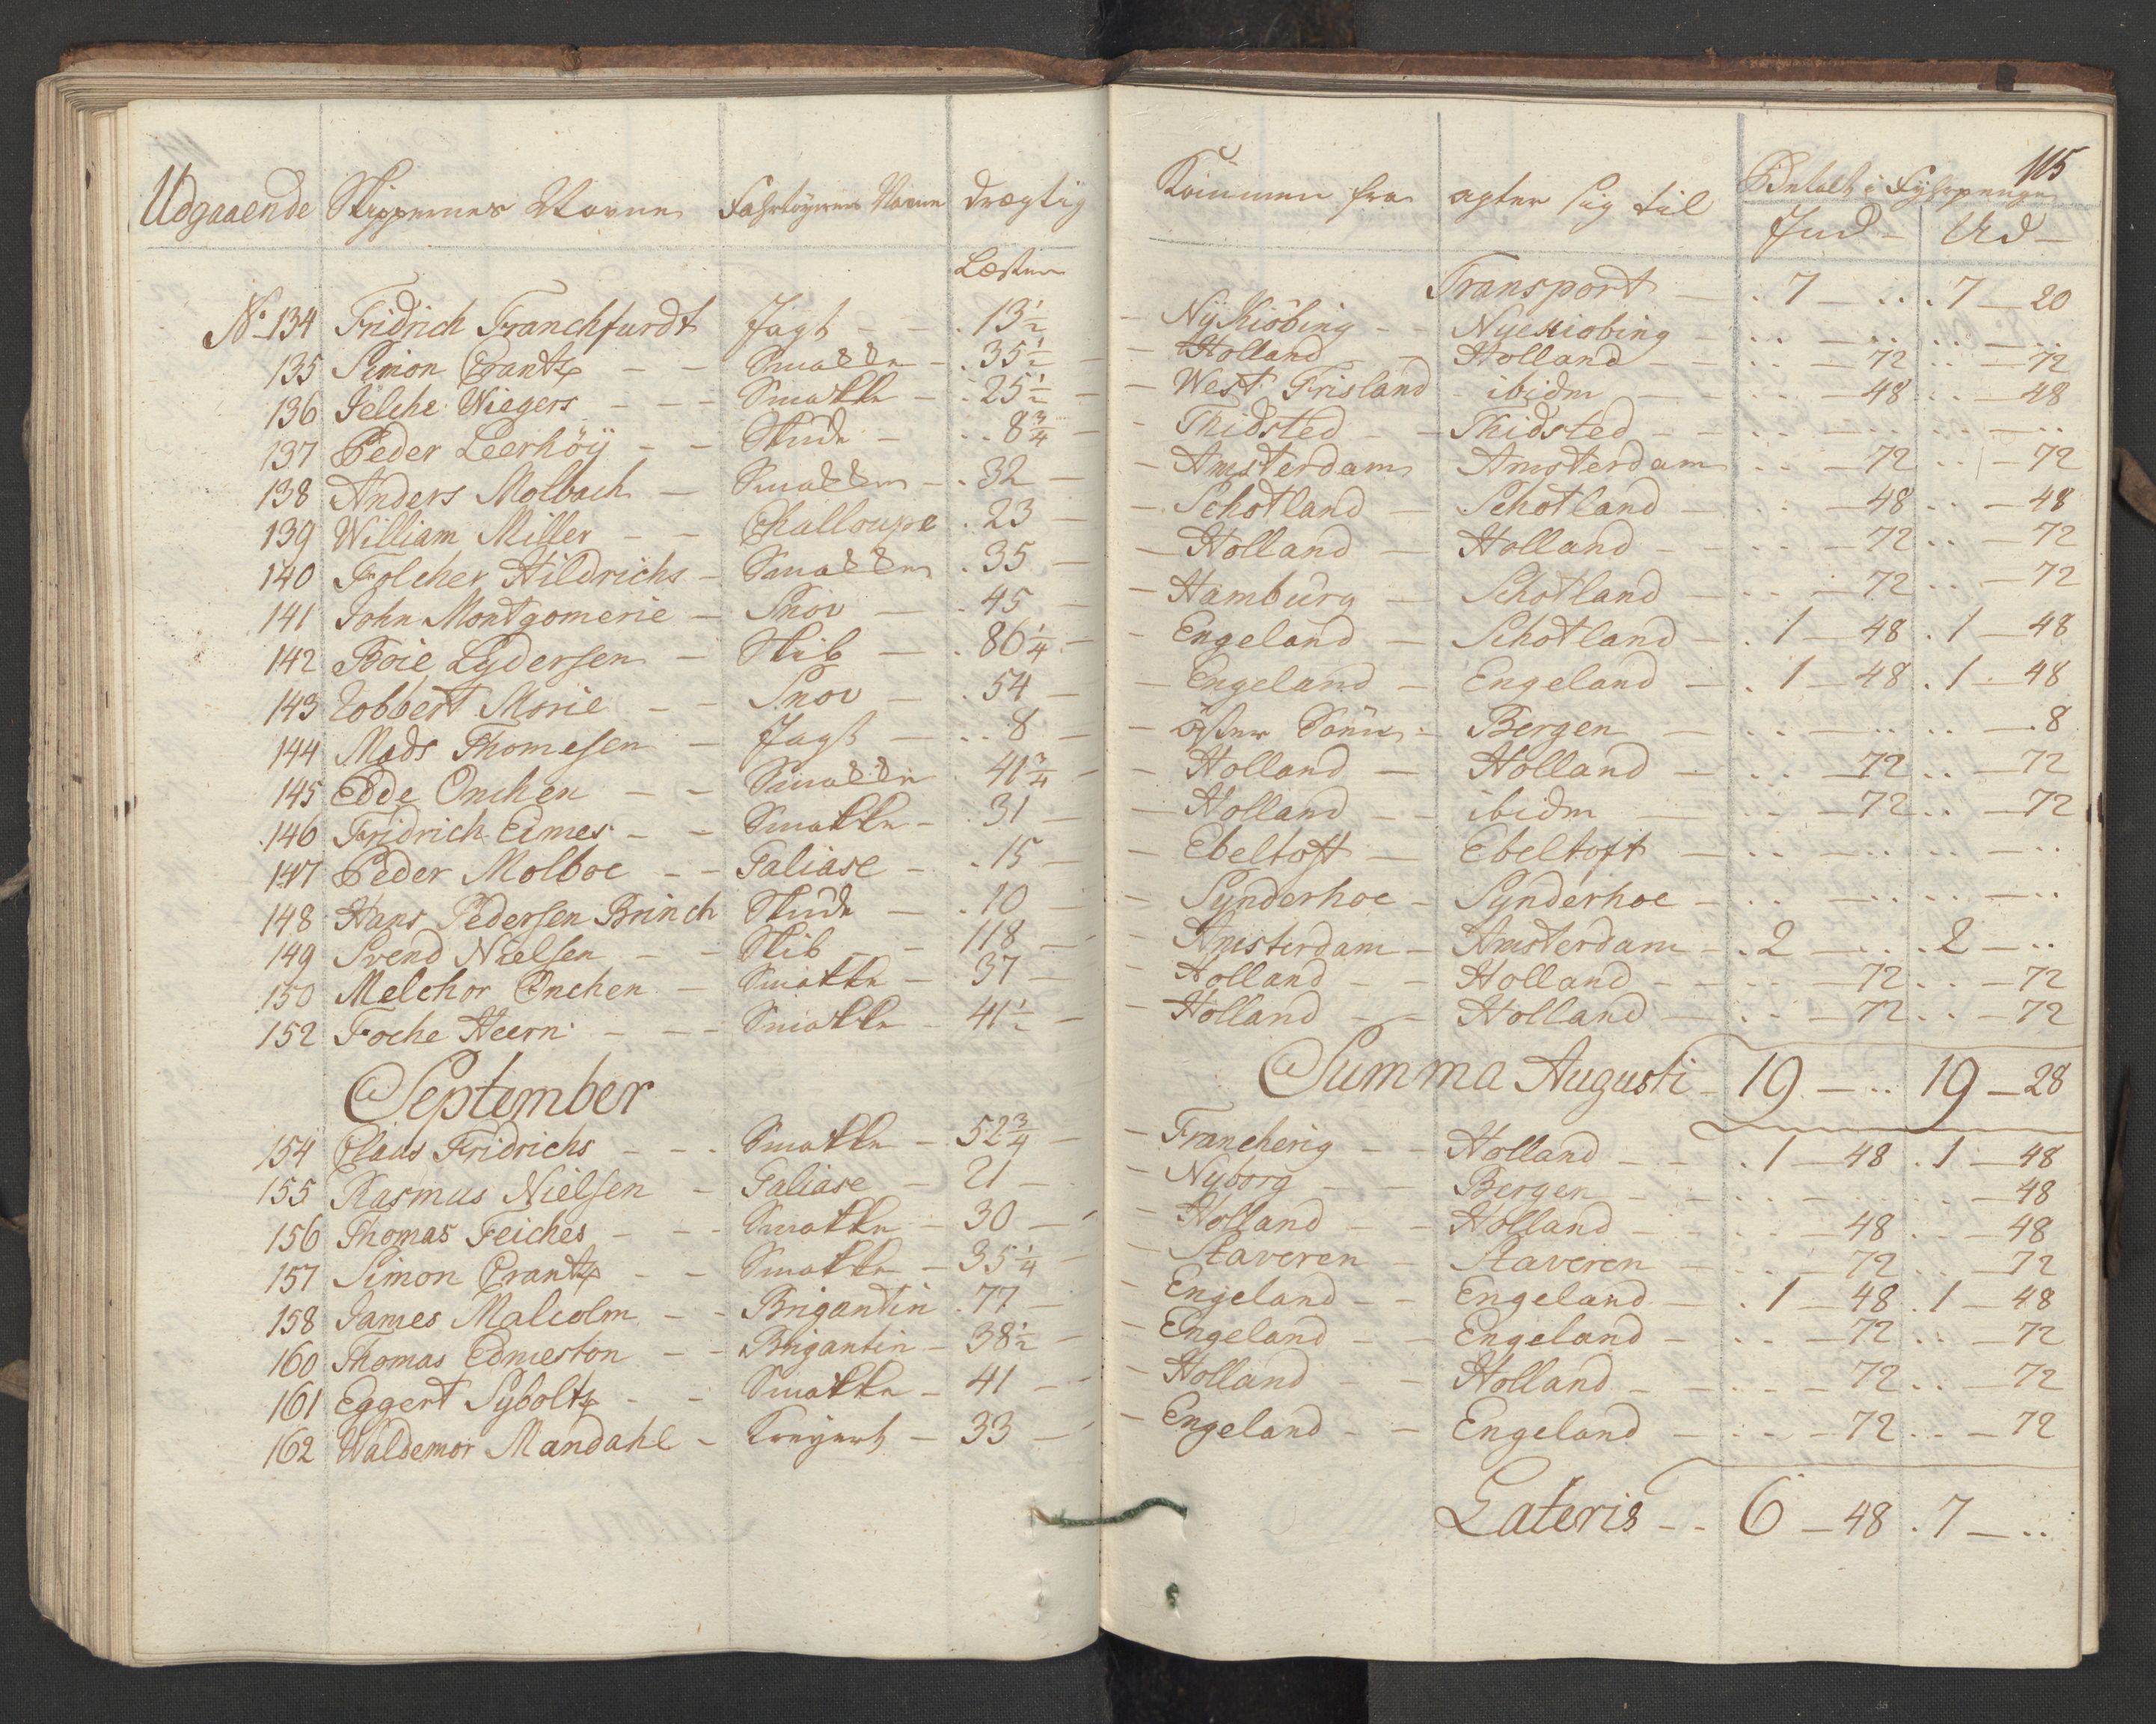 115
Udgaaende Skippernes Navne Fahrtøyernes Navne drægtig Kommen fra agter sig til Betalt i Fyhrpenge
Læster Ind - Ud -
Transport - . 7 - .. . 7 - 20
No 134 Fridrich Franchfurdt Jagt - - . 13 1/2 - Nÿkiöbing - - Nyekiobing - .. - .. .. - ..
135 Simon Crantz - - Smakke - . 35 1/2 - Holland - - Holland - .. - 72 .. - 72
136 Jelche Wiegers - - - Smakke - . 25 1/2 - West Frisland - ibidm - .. - 48 .. - 48
137 Peder Leerhöÿ - - Skude - .. 8 3/4 - Thidsted - - Thidsted - .. - .. .. - ..
138 Anders Molbach - Smakke - . 32 - Amsterdam Amsterdam .. - 72 .. - 72
139 William Miller - - Challoupe . 23 - Schotland - Schotland - .. - 48 .. - 48
140 Folcher Hildrichs - Smakke . 35 - Holland - Holland - .. - 72 .. - 72
141 John Montgomerie - Snov - . 45 - Hamburg - Schotland - .. - 72 .. - 72
142 Boie Lydersen - Skib - . 86 1/4 - Engeland - Schotland - . 1 - 48 . 1 - 48
143 Robbert Morie - - Snov - . 54 - Engeland - Engeland - . 1 - 48 . 1 - 48
144 Mads Thomesen - Jagt - .. 8 - Bergen - .. - .. .. - . 8
145 Edde Onchen - - Smakke . 41 3/4 - Holland - Holland - .. - 72 .. - 72
146 Fridrich Eimes - - Smakke - . 31 - Holland - - ibidm - .. - 72 .. - 72
147 Peder Molboe - - Galiase - . 15 - Ebeltoft - Ebeltoft - .. - .. .. - ..
148 Hans Pedersen Brinch Skude - . 10 - Synderhoe - Synderhoe - .. - .. .. - ..
149 Svend Nielsen - - Skib - - 118 - Amsterdam - Amsterdam - . 2 - .. . 2 - ..
150 Melchor Onchen - Smakke - 37 - Holland - - Holland - .. - 72 .. - 72
152 Foche Heern - - - Smakke - 41 1/2 - Holland - - Holland - .. - 72 .. - 72
Summa Augusti - 19 - .. 19 - 28
September
154 Claus Fridrichs - - - Smakke - 52 3/4 - Francherig - - Holland - - . 1 - 48 . 1 - 48
155 Rasmus Nielsen - Galiase - 21 - Nyborg - - Bergen - .. - .. .. - 48
156 Thomas Feiches - - - Smakke - 30 - Holland - - Holland - .. - 48 .. - 48
157 Simon Crantz - - Smakke - 35 1/4 - Staveren - Staveren - .. - 72 .. - 72
158 James Malcolm - - Brigantin . 77 - Engeland - - Engeland - . 1 - 48 . 1 - 48
160 Thomas Edmeston - - Brigantin - 38 1/2 - Engeland - - Engeland - .. - 72 .. - 72
161 Eggert Syboltz - - Smakke - 41 - Holland - - Holland - .. - 72 .. - 72
162 Waldemor Mandahl - Kreyert - 33 - Engeland - - Engeland - .. - 72 .. - 72
Lateris - - 6 - 48 . 7 - ..